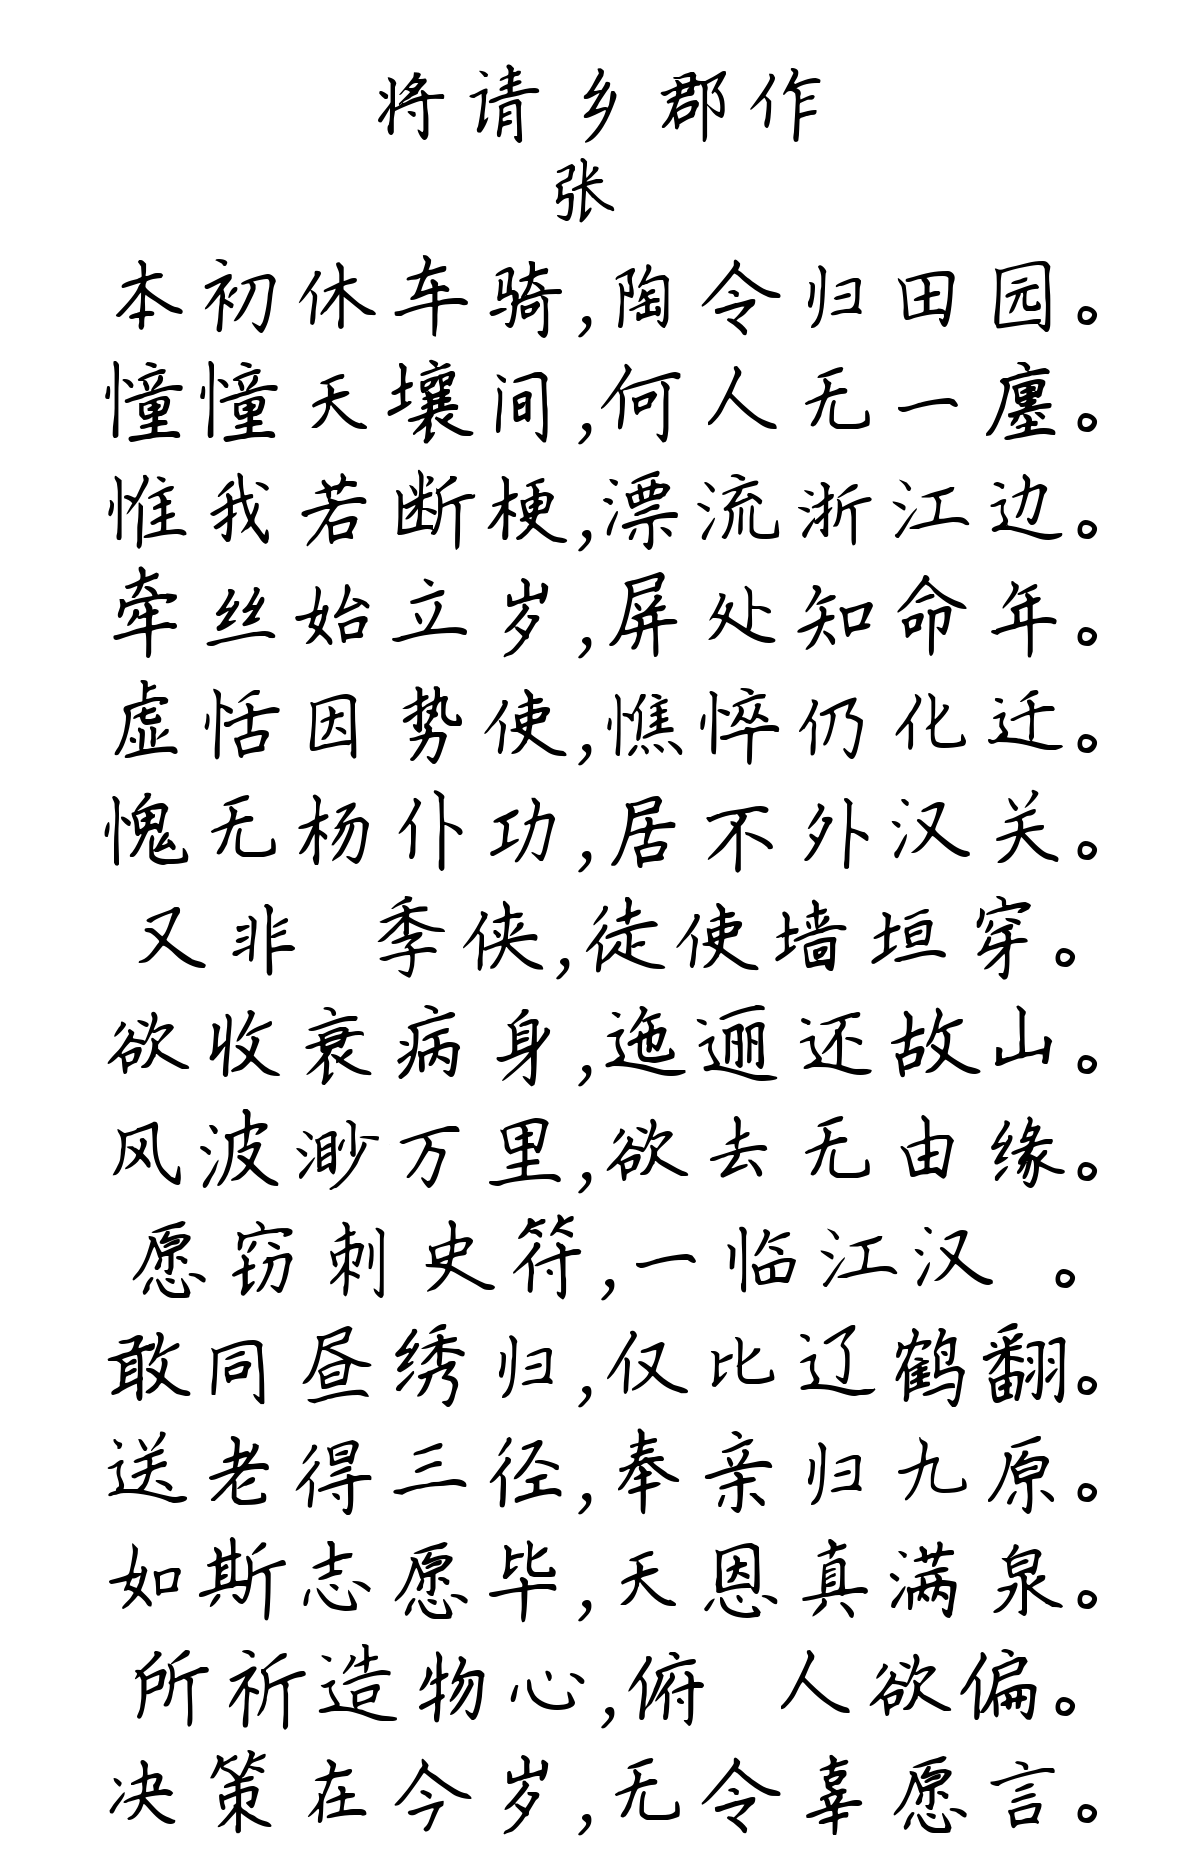 将请乡郡作
张
本初休车骑,陶令归田园。
憧憧天壤间,何人无一廛。
惟我若断梗,漂流浙江边。
牵丝始立岁,屏处知命年。
虚恬因势使,憔悴仍化迁。
愧无杨仆功,居不外汉关。
又非 季侠,徒使墙垣穿。
欲收衰病身,迤逦还故山。
风波渺万里,欲去无由缘。
愿窃刺史符,一临江汉 。
敢同昼绣归,仅比辽鹤翻。
送老得三径,奉亲归九原。
如斯志愿毕,天恩真满泉。
所祈造物心,俯 人欲偏。
决策在今岁,无令辜愿言。